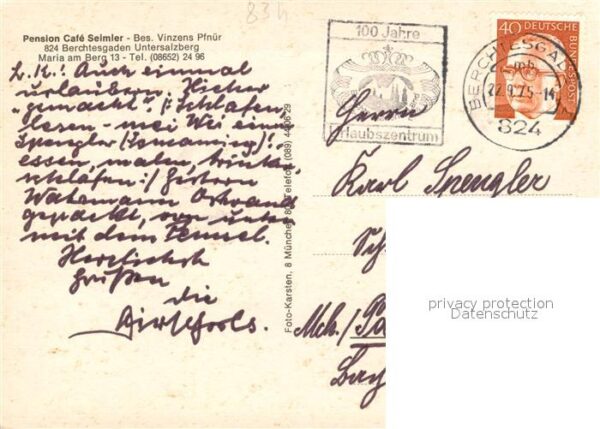 83 h
Pension Café Seimler - Bes. Vinzens Pfnür
824 Berchtesgaden Untersalzberg
Maria am Berg 13 - Tel. (08652) 24 96
L. K.! Auch einmal
urlauben. Hicher
"gemacht". Schlafen,
lesen - Wei ein
Spengler (Ismaning)!
essen, malen,
schlafen :/ Gestern
Watzmann Ostwand
geguckt, von unten
mit dem Pennel.
Herzlichst
Grüßen
die
Foto-Karsten, 8 München 8 Telefon (089) 44 06 29
100 Jahre
Urlaubszentrum
BERCHTESGADEN
mb
22.9.75-14
824
40 DEUTSCHE BUNDESPOST
Herrn
Karl Spengler
Sch
Mch./Pa
Bay
privacy protection
Datenschutz